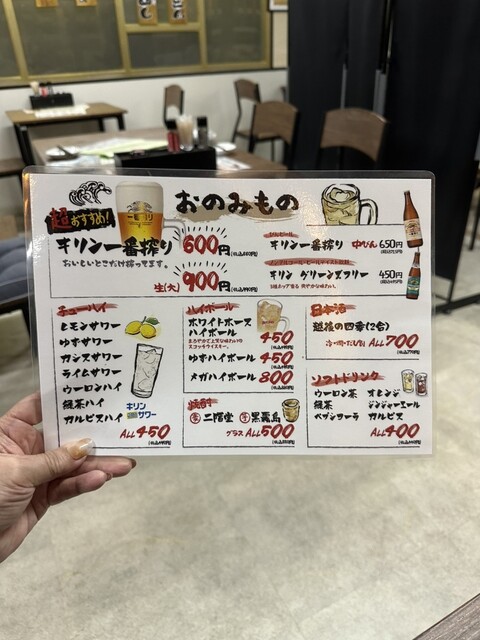 おのみもの
超おすすめ!
一番搾り
キリン一番搾り 600円
おいしいとこだけ搾ってます。
生(大) 900円
キリン一番搾り 中びん 650円
ノンアルコール・ビールテイスト飲料
キリン グリーンズフリー 450円
チューハイ
レモンサワー
ゆずサワー
カシスサワー
ライムサワー
ウーロンハイ
緑茶ハイ
カルピスハイ
キリン
サワー
ALL 450円
ハイボール
ホワイトホース
ハイボール
まろやかで上質な味わいの
スコッチウイスキー。
450円
ゆずハイボール 450円
メガハイボール 800円
焼酎
麦 二階堂 芋 黒霧島
グラス ALL 500円
日本酒
越後の四季(2合)
ALL 700円
ソフトドリンク
ウーロン茶 オレンジ
緑茶 ジンジャーエール
ペプシコーラ カルピス
ALL 400円